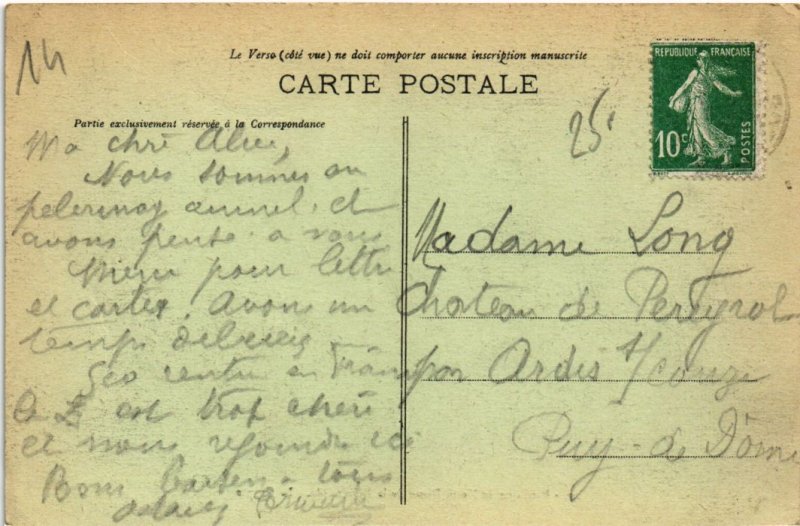 14
Le Verso (côté vue) ne doit comporter aucune inscription manuscrite
CARTE POSTALE
Partie exclusivement réservée à la Correspondance
REPUBLIQUE FRANÇAISE
10c
POSTES
25
Ma chre
Nous sommes en
pelerinag annuel. et
avons pensé a vous
Merci pour lettre
et cartes. Avons un
temps
Geo rentre en
est trop cher
et nous rejoindra ici
Bons baisers a tous
Madame Long
Chateau de Pereyrol
par Ardes s/Couze
Puy-de Dôme